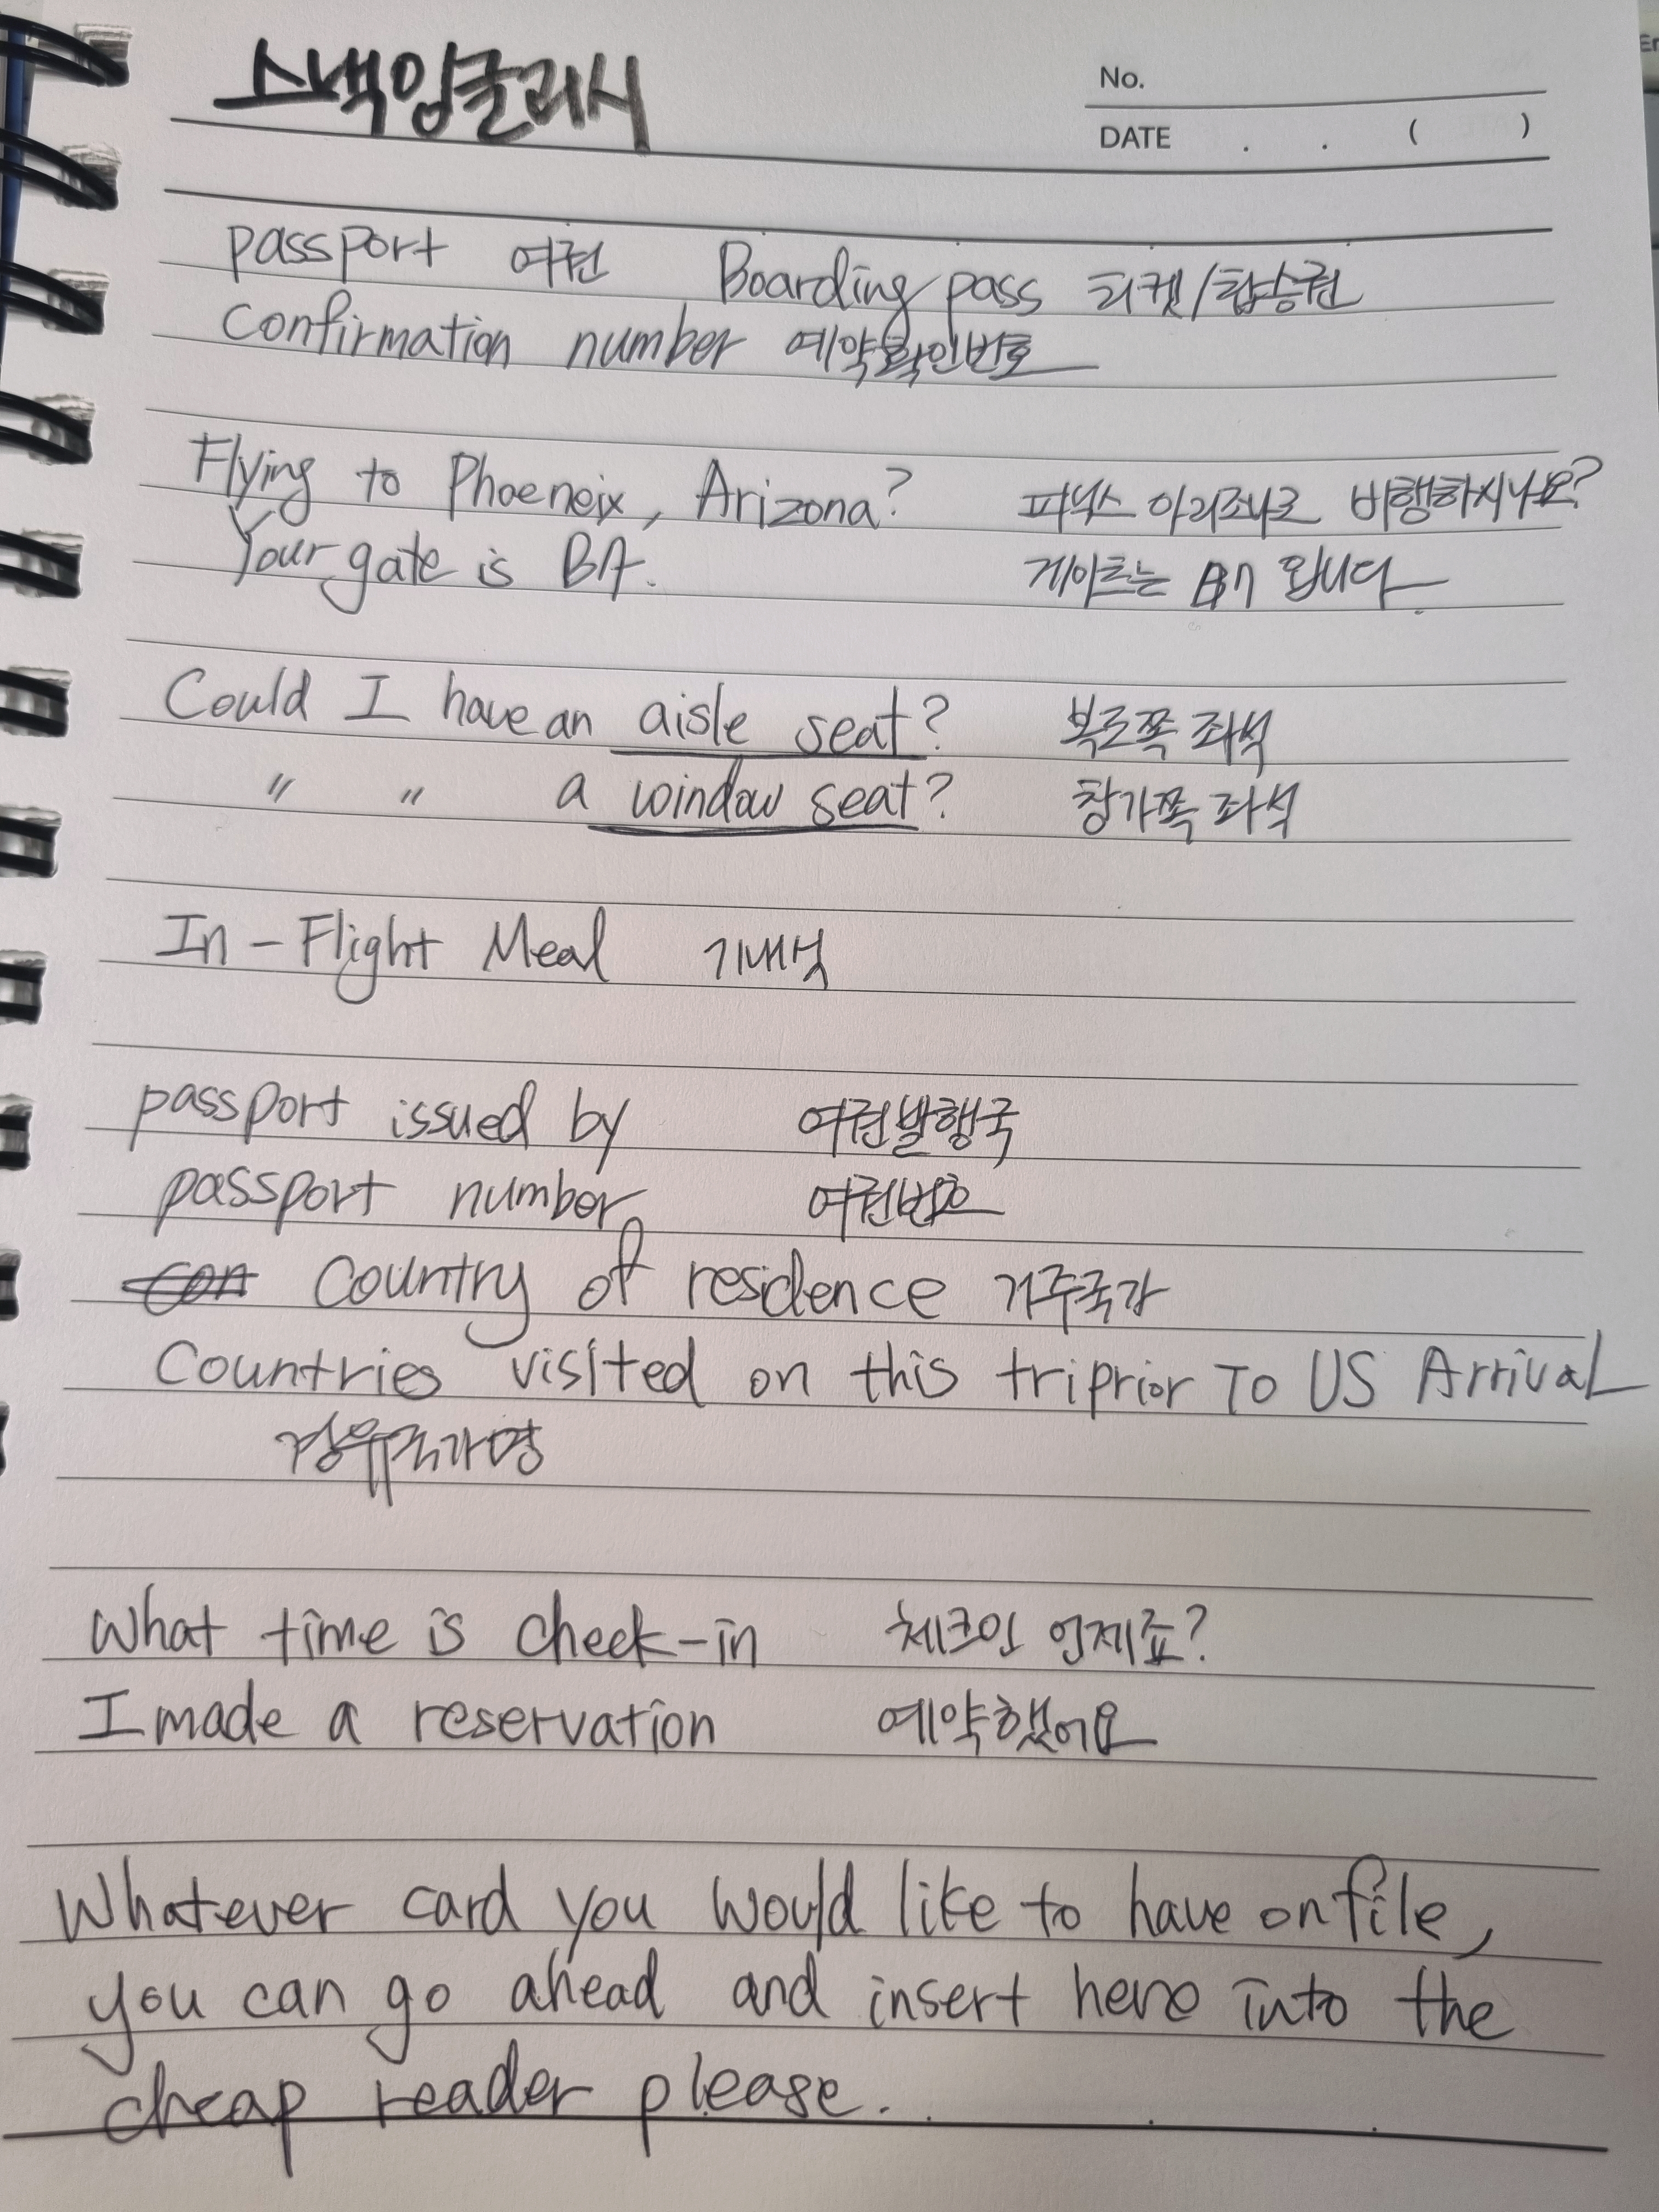 스낵잉글리시
No.
DATE . . ( )
passport 여권 Boarding pass 티켓/탑승권
Confirmation number 예약확인번호
Flying to Phoeneix, Arizona? 피닉스 아리조나로 비행하시나요?
Your gate is B7. 게이트는 B7 입니다
Could I have an aisle seat? 복도쪽 좌석
" " a window seat? 창가쪽 좌석
In-Flight Meal 기내식
passport issued by 여권발행국
passport number 여권번호
Con Country of residence 거주국가
Countries visited on this triprior To US Arrival
경유국가명
What time is check-in 체크인 언제죠?
I made a reservation 예약했어요
Whatever card you would like to have on file,
you can go ahead and insert here into the
cheap reader please.